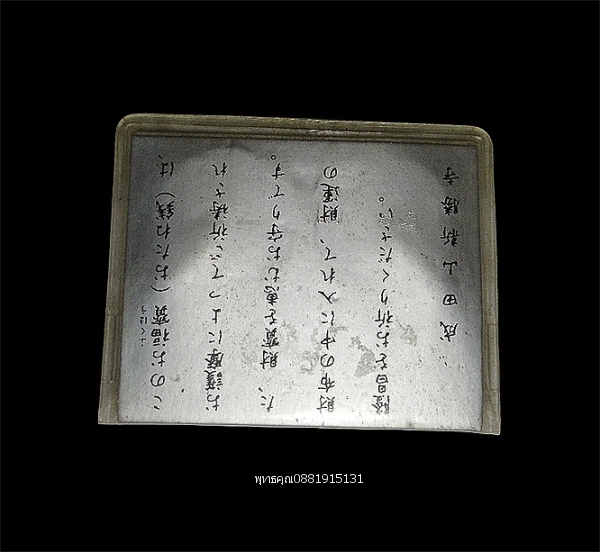 このお福寶（おたね銭）は、
ふくほう
お護摩によってご祈祷され
た、財寶を恵むお守りです。
財布の中に入れて、財運の
隆昌をお祈りください。
成田山新勝寺
พุทธคุณ0881915131